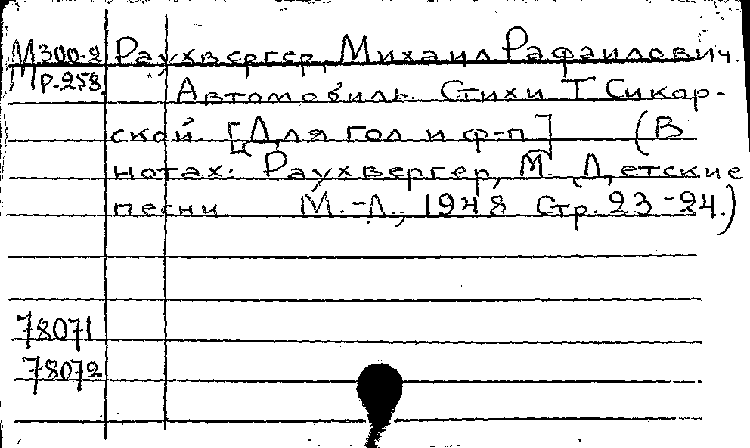 М300-2 Раухвергер, Михаил Рафаилович.
МР-258. Автомобиль. Стихи Т Сикор-
ской. [Для гол и ф-п] (В
нотах: Раухвергер, М. Детские
песни М.-Л., 1948 Стр. 23-24.)
78071
78072